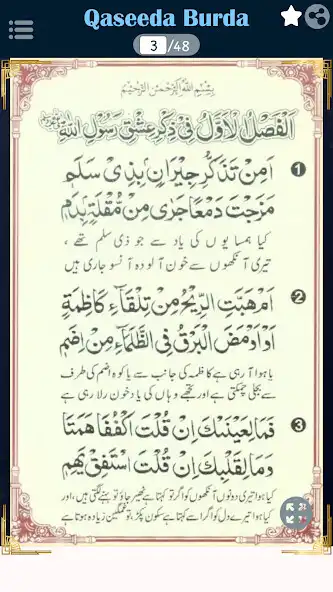 Qaseeda Burda
3 /48
بِسْمِ اللّٰهِ الرَّحْمٰنِ الرَّحِيْمِ
اَلْفَصْلُ الْاَوَّلُ فِيْ ذِكْرِ عِشْقِ رَسُوْلِ اللّٰهِ ﷺ
1 اَمِنْ تَذَكُّرِ جِيْرَانٍ بِذِيْ سَلَمٖ
مَزَجْتَ دَمْعًا جَرٰى مِنْ مُّقْلَةٍ بِدَمٖ
کیا ہمسایوں کی یاد سے جو ذی سلم تھے ،
تیری آنکھوں سے خون آلودہ آنسو جاری ہیں
2 اَمْ هَبَّتِ الرِّيْحُ مِنْ تِلْقَآءِ كَاظِمَةٍ
اَوْ اَوْمَضَ الْبَرْقُ فِي الظَّلْمَآءِ مِنْ اِضَمٖ
یا ہوا آرہی ہے کاظمہ کی جانب سے یا کوہ اضم کی طرف
سے بجلی چمکتی ہے اور تجھے وہاں کی یاد خون رلا رہی ہے
3 فَمَا لِعَيْنَيْكَ اِنْ قُلْتَ اكْفُفَا هَمَتَا
وَمَا لِقَلْبِكَ اِنْ قُلْتَ اسْتَفِقْ يَهِمٖ
کیا ہوا تیری دونوں آنکھوں کو اگر تو کہتا ہے ٹھیر جاؤ تو بہنے لگتی ہیں، اور
کیا ہوا تیرے دل کو اگر اسے کہتا ہے سکون پکڑ، تو غمگین زیادہ ہوتا ہے